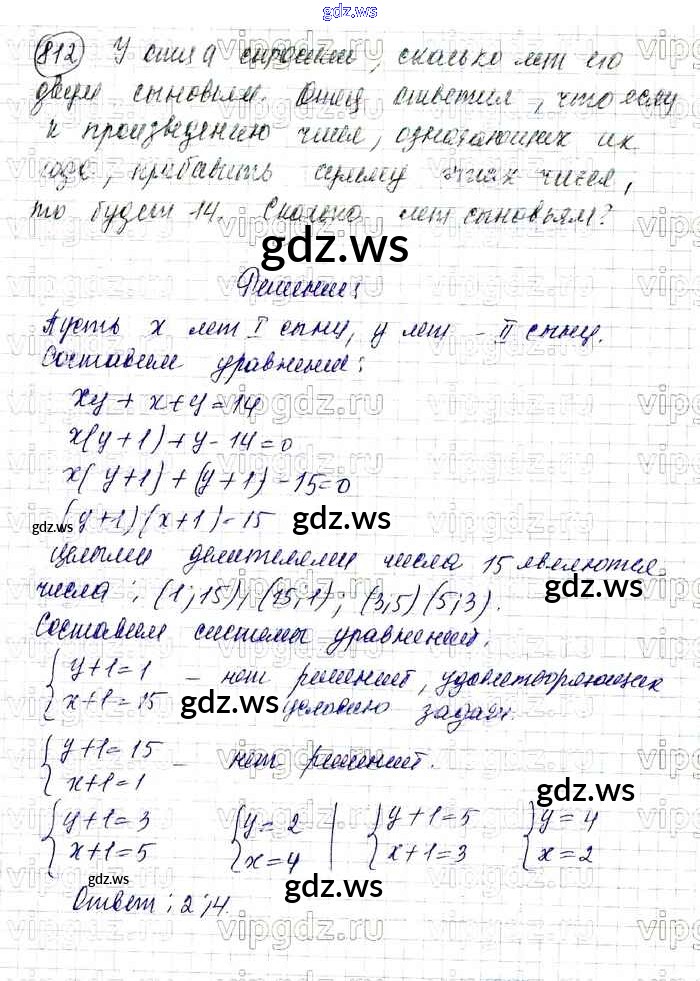 gdz.ws
812 У отца спросили, сколько лет его
двум сыновьям. Отец ответил, что если
к произведению чисел, означающих их
года, прибавить сумму этих чисел,
то будет 14. Сколько лет сыновьям?
gdz.ws
Решение:
Пусть x лет I сыну, y лет - II сыну.
Составим уравнение:
xy + x + y = 14
x(y+1) + y - 14 = 0
x(y+1) + (y+1) - 15 = 0
(y+1)(x+1) = 15
gdz.ws gdz.ws
Целыми делителями числа 15 являются
gdz.ws
числа: (1;15); (15;1); (3;5) (5;3).
Составим системы уравнений.
{ y+1=1 - нет решений, удовлетворяющих
{ x+1=15 условию задачи.
gdz.ws gdz.ws
{ y+1=15 - нет решений.
{ x+1=1
gdz.ws
{ y+1=3 { y=2 | { y+1=5 { y=4
{ x+1=5 { x=4 | { x+1=3 { x=2
gdz.ws gdz.ws
Ответ: 2; 4.
vipgdz.ru